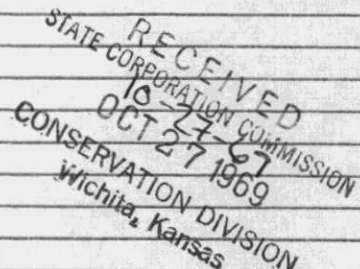 RECEIVED
STATE CORPORATION COMMISSION
10-27-69
OCT 27 1969
CONSERVATION DIVISION
Wichita, Kansas